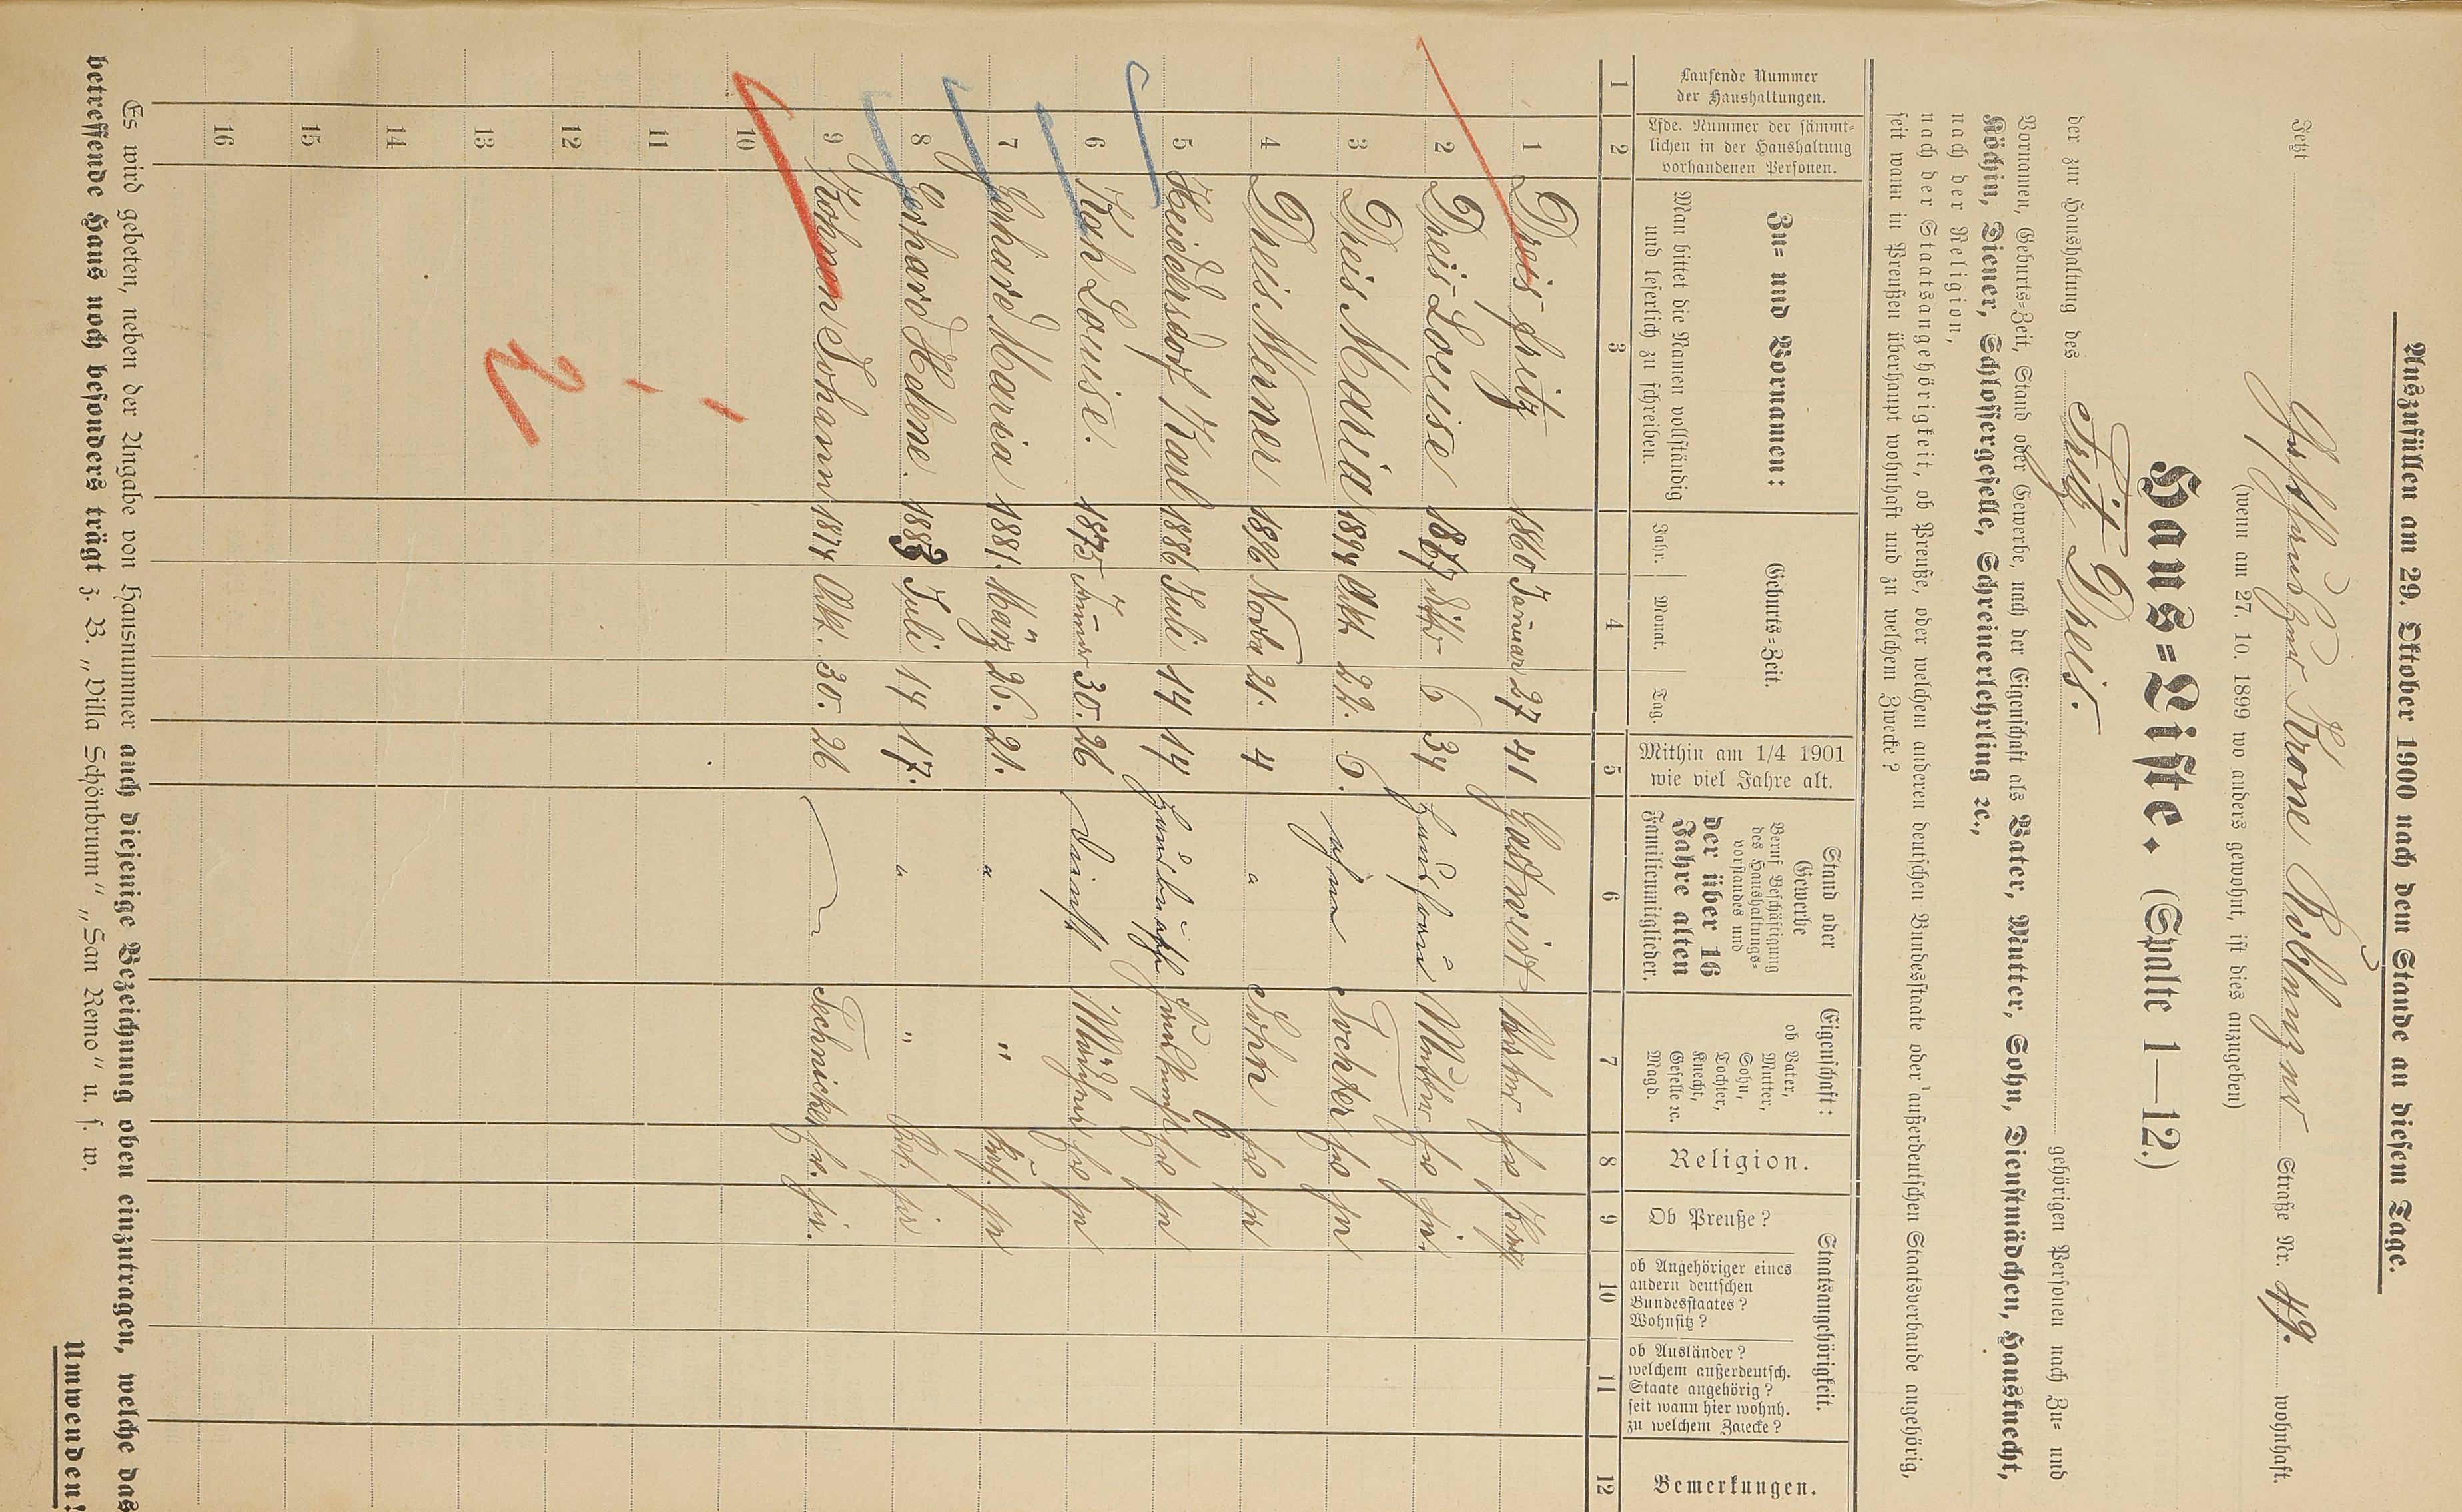 Auszufüllen am 29. Oktober 1900 nach dem Stande an diesem Tage.
Jetzt Krone Straße Nr. 49. wohnhaft.
(wenn am 27. 10. 1899 wo anders gewohnt, ist dies anzugeben)
Haus=Liste. (Spalte 1—12.)
der zur Haushaltung des Fritz Dreis. gehörigen Personen nach Zu= und
Vornamen, Geburts=Zeit, Stand oder Gewerbe, nach der Eigenschaft als Vater, Mutter, Sohn, Dienstmädchen, Hausknecht,
Köchin, Diener, Schlossergeselle, Schreinerlehrling ꝛc.,
nach der Religion,
nach der Staatsangehörigkeit, ob Preuße, oder welchem anderen deutschen Bundesstaate oder außerdeutschen Staatsverbande angehörig,
seit wann in Preußen überhaupt wohnhaft und zu welchem Zwecke?
Laufende Nummer der Haushaltungen.
Lfde. Nummer der sämmt=lichen in der Haushaltung vorhandenen Personen.
Zu= und Vornamen:
Man bittet die Namen vollständig und leserlich zu schreiben.
Geburts=Zeit.
Jahr. Monat. Tag.
Mithin am 1/4 1901 wie viel Jahre alt.
Stand oder Gewerbe
Beruf Beschäftigung des Haushaltungs=vorstandes und
der über 16 Jahre alten Familienmitglieder.
Eigenschaft:
ob Vater, Mutter, Sohn, Tochter, Knecht, Geselle ꝛc. Magd.
Religion.
Staatsangehörigkeit.
Ob Preuße?
ob Angehöriger eines andern deutschen Bundesstaates? Wohnsitz?
ob Ausländer? welchem außerdeutsch. Staate angehörig? seit wann hier wohnh. zu welchem Zwecke?
Bemerkungen.
1 2 3 4 5 6 7 8 9 10 11 12
1 Dreis Fritz 1860 Januar 27 41 Gastwirt Vater
2 Dreis Louise 1867 6 34 Mutter
3 Dreis Maria 1894 Okt. 22. 6. ohne Tochter
4 Dreis Werner 1896 Novbr 21. 4 " Sohn
5 Heidersdorf Karl 1886 Juli 14 14
6 Koch Louise. 1875 Januar 30. 26
7 Gerhard Maria 1881. März 26. 21. " "
8 Gerhard Helene. 1883 Juli 17 17. " "
9 Johann 1874 Okt. 30. 26 Techniker
10
11
12
13
14
15
16
2
Es wird gebeten, neben der Angabe von Hausnummer auch diejenige Bezeichnung oben einzutragen, welche das
betreffende Haus noch besonders trägt z. B. „Villa Schönbrunn" „San Remo" u. s. w.
Umwenden!